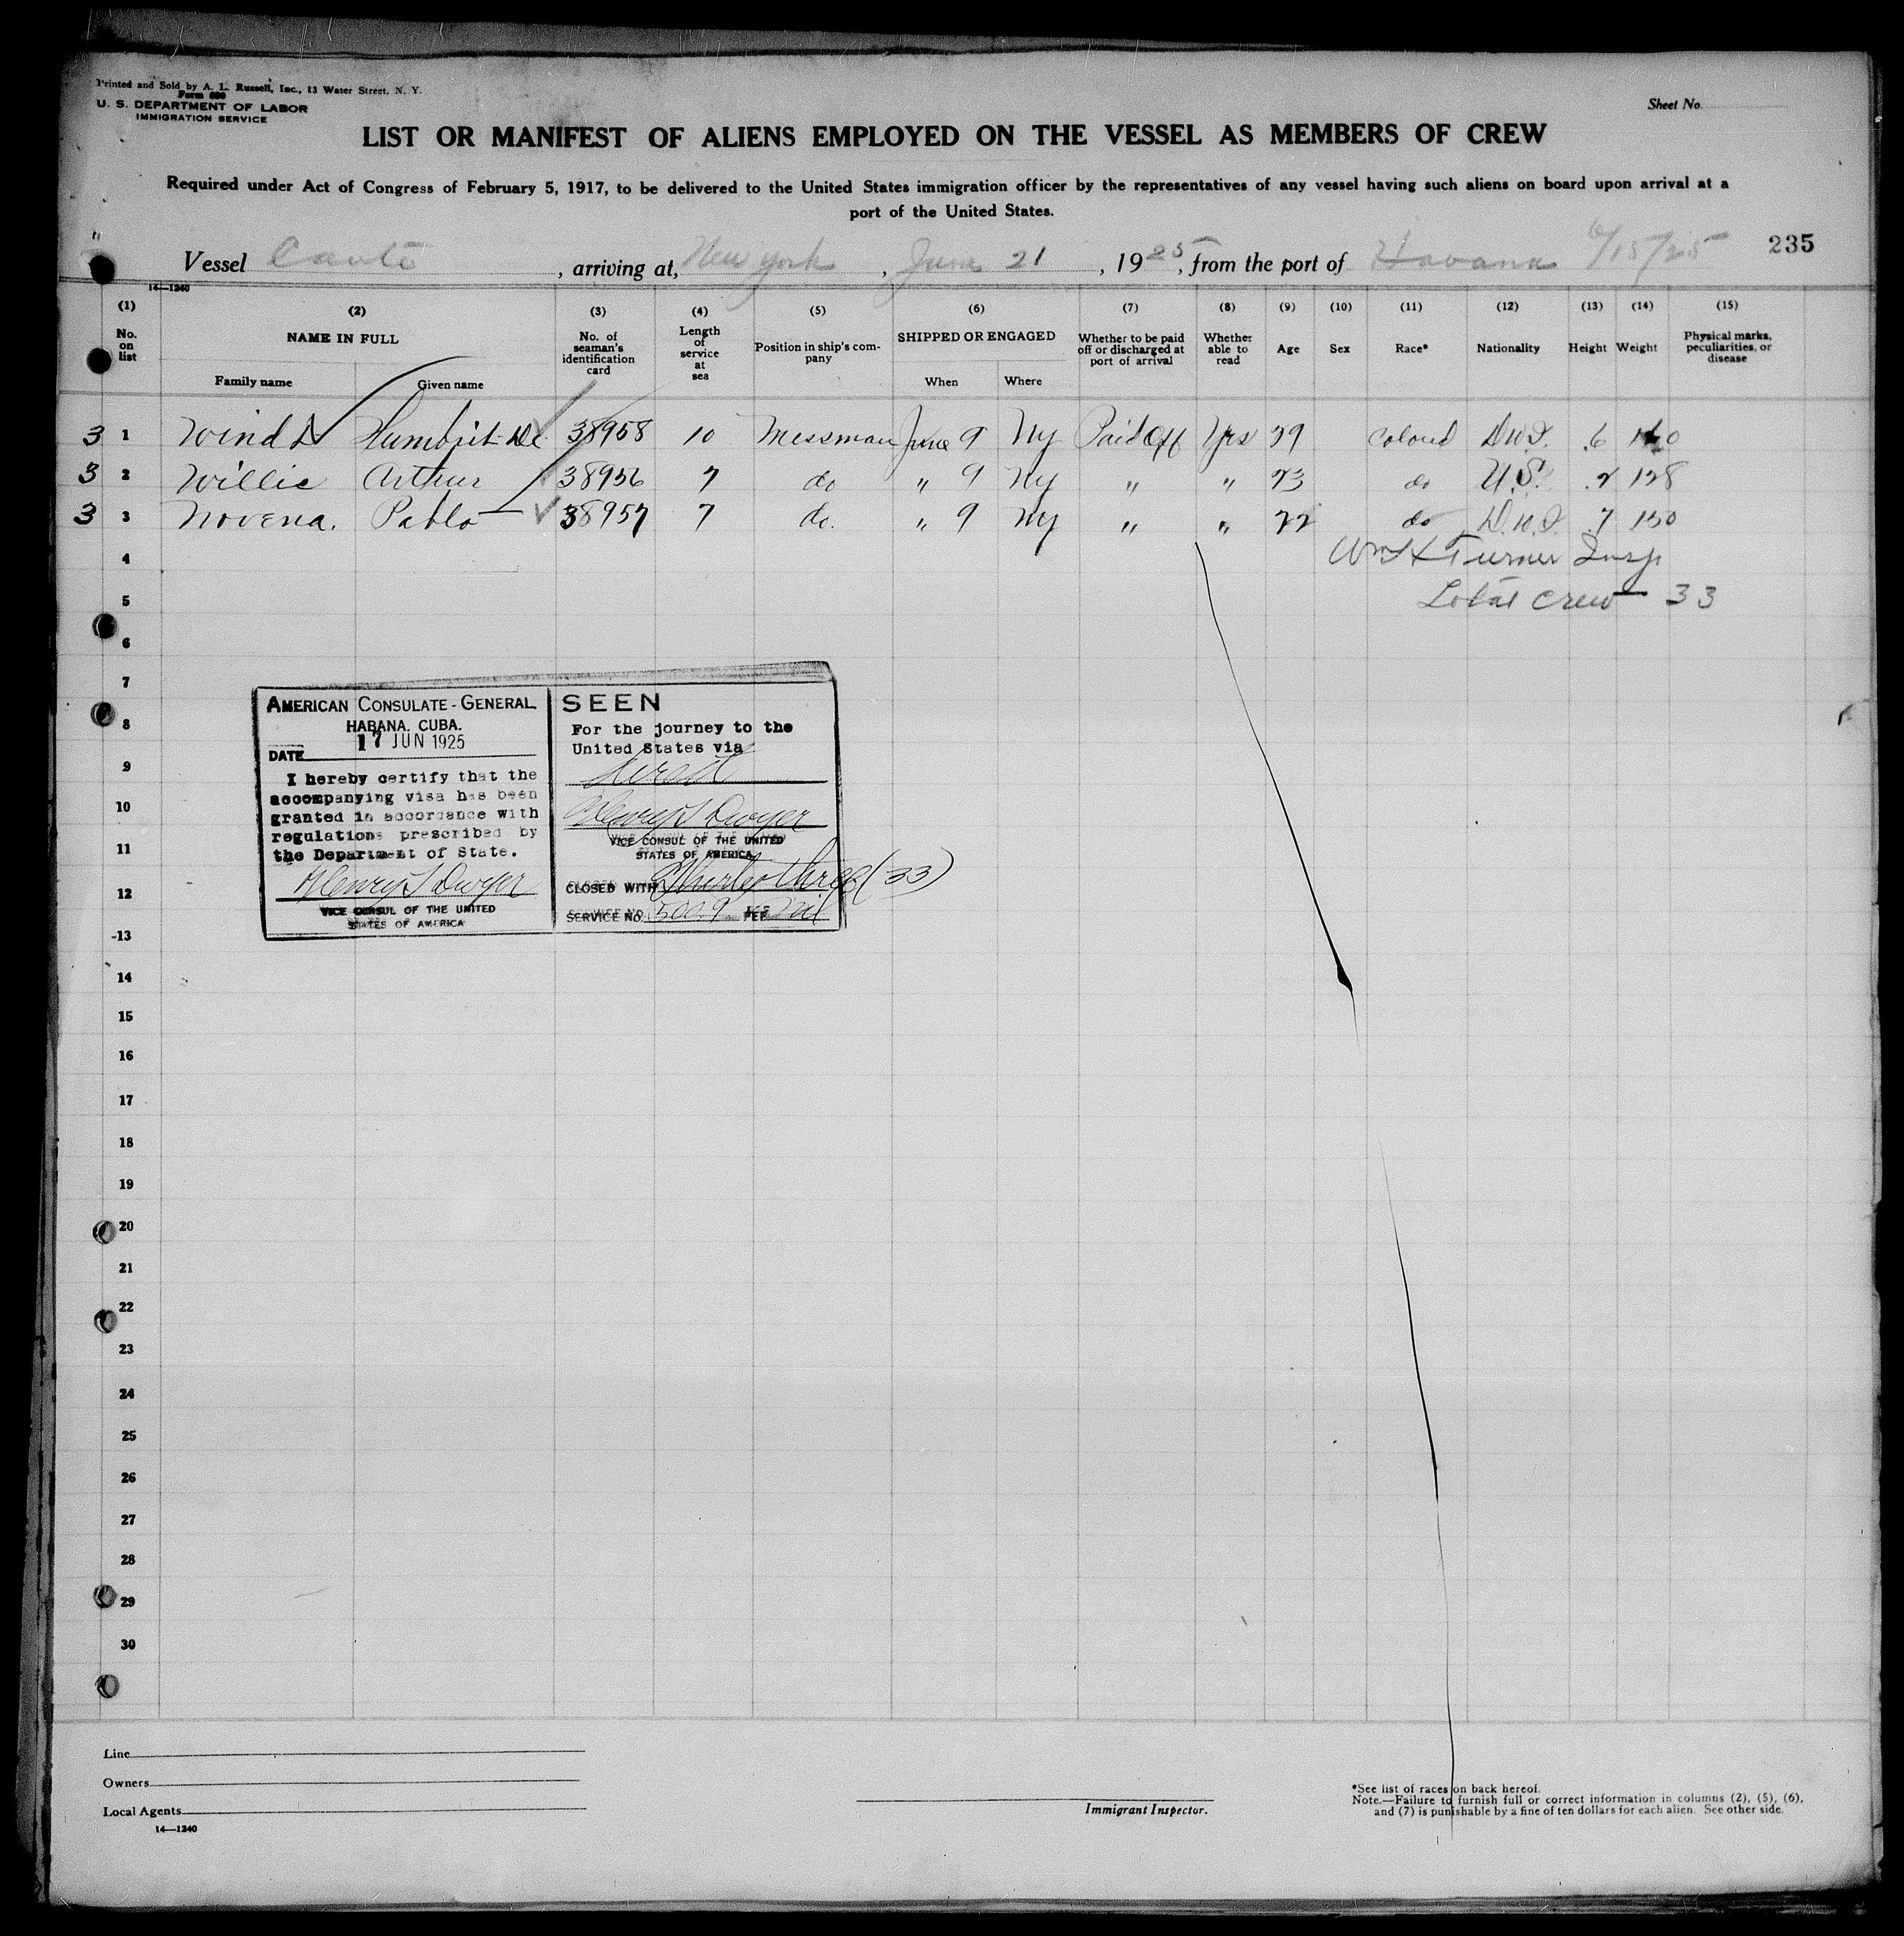 Printed and Sold by A. L. Russell, Inc., 13 Water Street, N. Y.
Form 680
U. S. DEPARTMENT OF LABOR
IMMIGRATION SERVICE
Sheet No.
LIST OR MANIFEST OF ALIENS EMPLOYED ON THE VESSEL AS MEMBERS OF CREW
Required under Act of Congress of February 5, 1917, to be delivered to the United States immigration officer by the representatives of any vessel having such aliens on board upon arrival at a
port of the United States.
235
Vessel Cauto, arriving at, New York, June 21, 1925, from the port of Havana 6/15/25
14—1240
(1) (2) (3) (4) (5) (6) (7) (8) (9) (10) (11) (12) (13) (14) (15)
No. on list
NAME IN FULL
Family name Given name
No. of seaman's identification card
Length of service at sea
Position in ship's company
SHIPPED OR ENGAGED
When Where
Whether to be paid off or discharged at port of arrival
Whether able to read
Age
Sex
Race*
Nationality
Height
Weight
Physical marks, peculiarities, or disease
3 1 Windt Humbrit De 38958 10 Messman June 9 Ny Paid Off Yes 29 Colored D.W.I. .6 160
3 2 Willie Arthur 38956 7 do " 9 Ny " " 23 do U.S. .2 128
3 3 Novena. Pablo 38957 7 do. " 9 Ny " " 22 do D.W.I. .7 150
4 Wm H Turner Insp
5 Total crew — 33
6
7
8
9
10
11
12
13
14
15
16
17
18
19
20
21
22
23
24
25
26
27
28
29
30
AMERICAN CONSULATE-GENERAL
HABANA. CUBA.
DATE 17 JUN 1925
I hereby certify that the
accompanying visa has been
granted in accordance with
regulations prescribed by
the Department of State.
Henry S Dwyer
VICE CONSUL OF THE UNITED
STATES OF AMERICA
SEEN
For the journey to the
United States via
direct
Henry S Dwyer
VICE CONSUL OF THE UNITED
STATES OF AMERICA
CLOSED WITH Thirty three (33)
SERVICE No. 5009 FEE nil
Line
Owners
Local Agents
14—1240
Immigrant Inspector.
*See list of races on back hereof.
Note.—Failure to furnish full or correct information in columns (2), (5), (6),
and (7) is punishable by a fine of ten dollars for each alien. See other side.